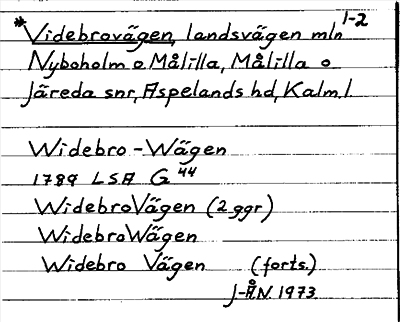 *Videbrovägen, landsvägen mln 1-2
Nyboholm o Målilla, Målilla o
Järeda snr, Aspelands hd, Kalm.l.
Widebro-Wägen
1789 LSA G 44
WidebroVägen (2 ggr)
WidebroWägen
Widebro Vägen (forts.)
J-Å.N. 1973